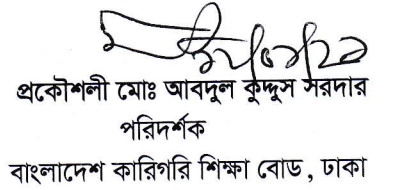 প্রকৌশলী মোঃ আবদুল কুদ্দুস সরদার
পরিদর্শক
বাংলাদেশ কারিগরি শিক্ষা বোর্ড , ঢাকা